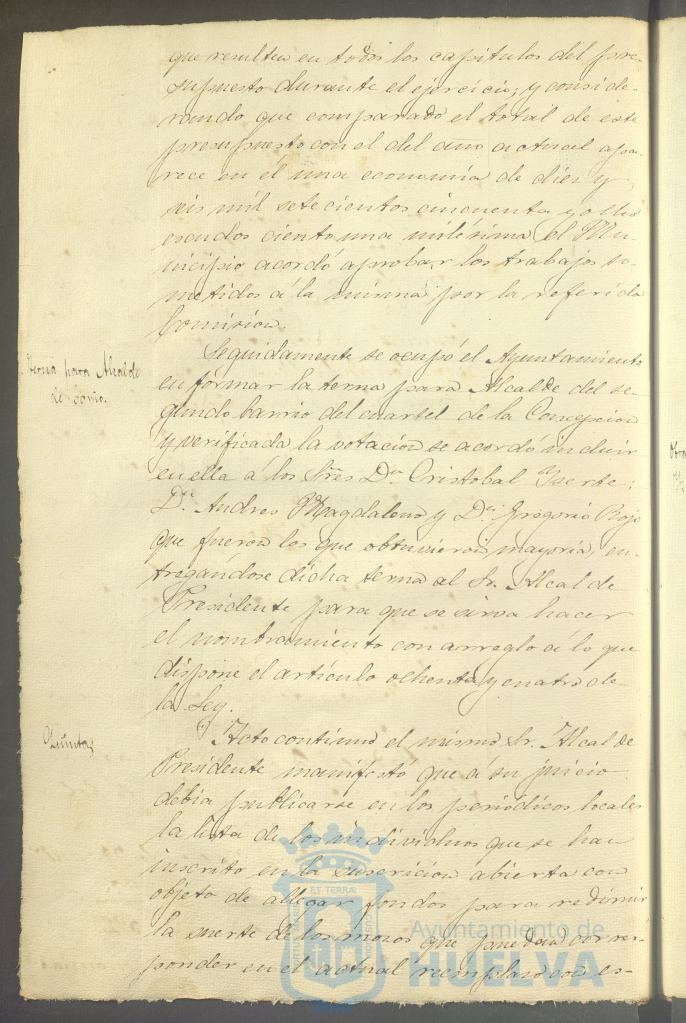 que resulten en todos los capitulos del pre-
supuesto durante el ejercicio; y conside-
rando que comparado el total de este
presupuesto con el del año actual apa-
rece en él una economia de diez y
seis mil setecientos cincuenta y ocho
escudos ciento una milésima el Mu-
nicipio acordó aprobar los trabajos so-
metidos á la misma por la referida
Comision.
Terna para Alcalde
de barrio.
Seguidamente se ocupó el Ayuntamiento
en formar la terna para Alcalde del se-
gundo barrio del cuartel de la Concepcion
y verificada la votacion se acordó incluir
en ella á los Sres Dn. Cristobal Iserte;
Dn. Andres Magdalena y Dn. Gregorio Rojo
que fueron los que obtuvieron mayoria, en-
tregandose dicha terna al Sr. Alcalde
Presidente para que se sirva hacer
el nombramiento con arreglo á lo que
dispone el artículo ochenta y cuatro de
la Ley.
Quintas
Acto continuo el mismo Sr. Alcalde
Presidente manifestó que á su juicio
debia publicarse en los periodicos locales
la lista de los individuos que se han
inscrito en la suscricion abierta con
objeto de allegar fondos para redimir
la suerte de los mozos que puedan corres-
ponder en el actual reemplazo con es-
ET TERRÆ
Ayuntamiento de
HUELVA